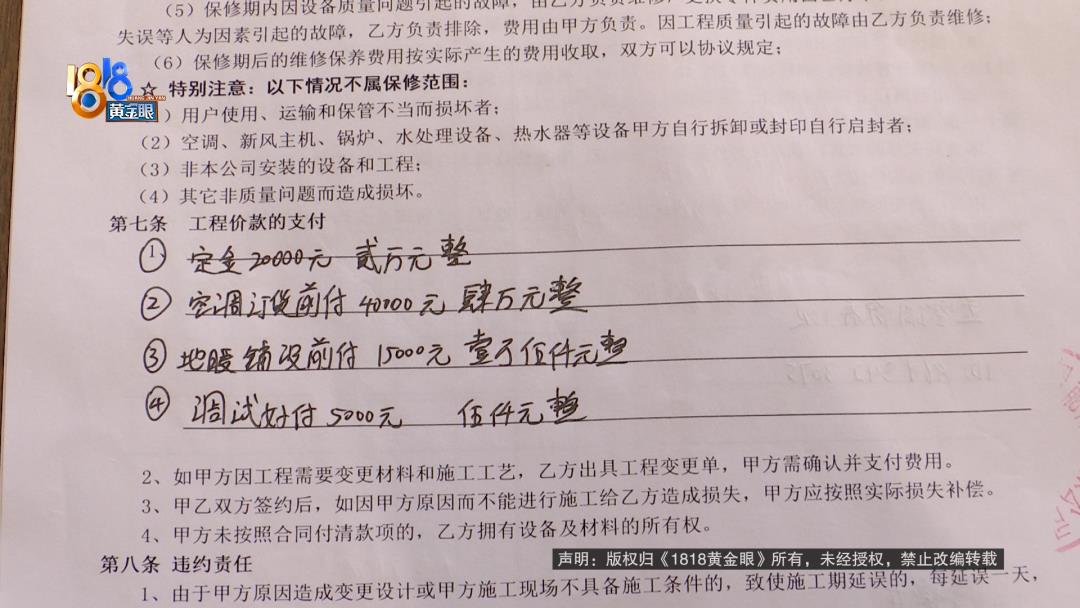 （5）保修期内因设备质量问题引起的故障，由乙方负责维修，更换零件费用
失误等人为因素引起的故障，乙方负责排除，费用由甲方负责。因工程质量引起的故障由乙方负责维修；
（6）保修期后的维修保养费用按实际产生的费用收取，双方可以协议规定；
1818黄金眼
☆ 特别注意：以下情况不属保修范围：
）用户使用、运输和保管不当而损坏者；
（2）空调、新风主机、锅炉、水处理设备、热水器等设备甲方自行拆卸或封印自行启封者；
（3）非本公司安装的设备和工程；
（4）其它非质量问题而造成损坏。
第七条 工程价款的支付
① 定金20000元 贰万元整
② 空调订货前付 40000元 肆万元整
③ 地暖铺设前付 15000元 壹万伍仟元整
④ 调试好付5000元 伍仟元整
2、如甲方因工程需要变更材料和施工工艺，乙方出具工程变更单，甲方需确认并支付费用。
3、甲乙双方签约后，如因甲方原因而不能进行施工给乙方造成损失，甲方应按照实际损失补偿。
4、甲方未按照合同付清款项的，乙方拥有设备及材料的所有权。
第八条 违约责任
声明：版权归《1818黄金眼》所有，未经授权，禁止改编转载
1、由于甲方原因造成变更设计或甲方施工现场不具备施工条件的，致使施工期延误的，每延误一天，